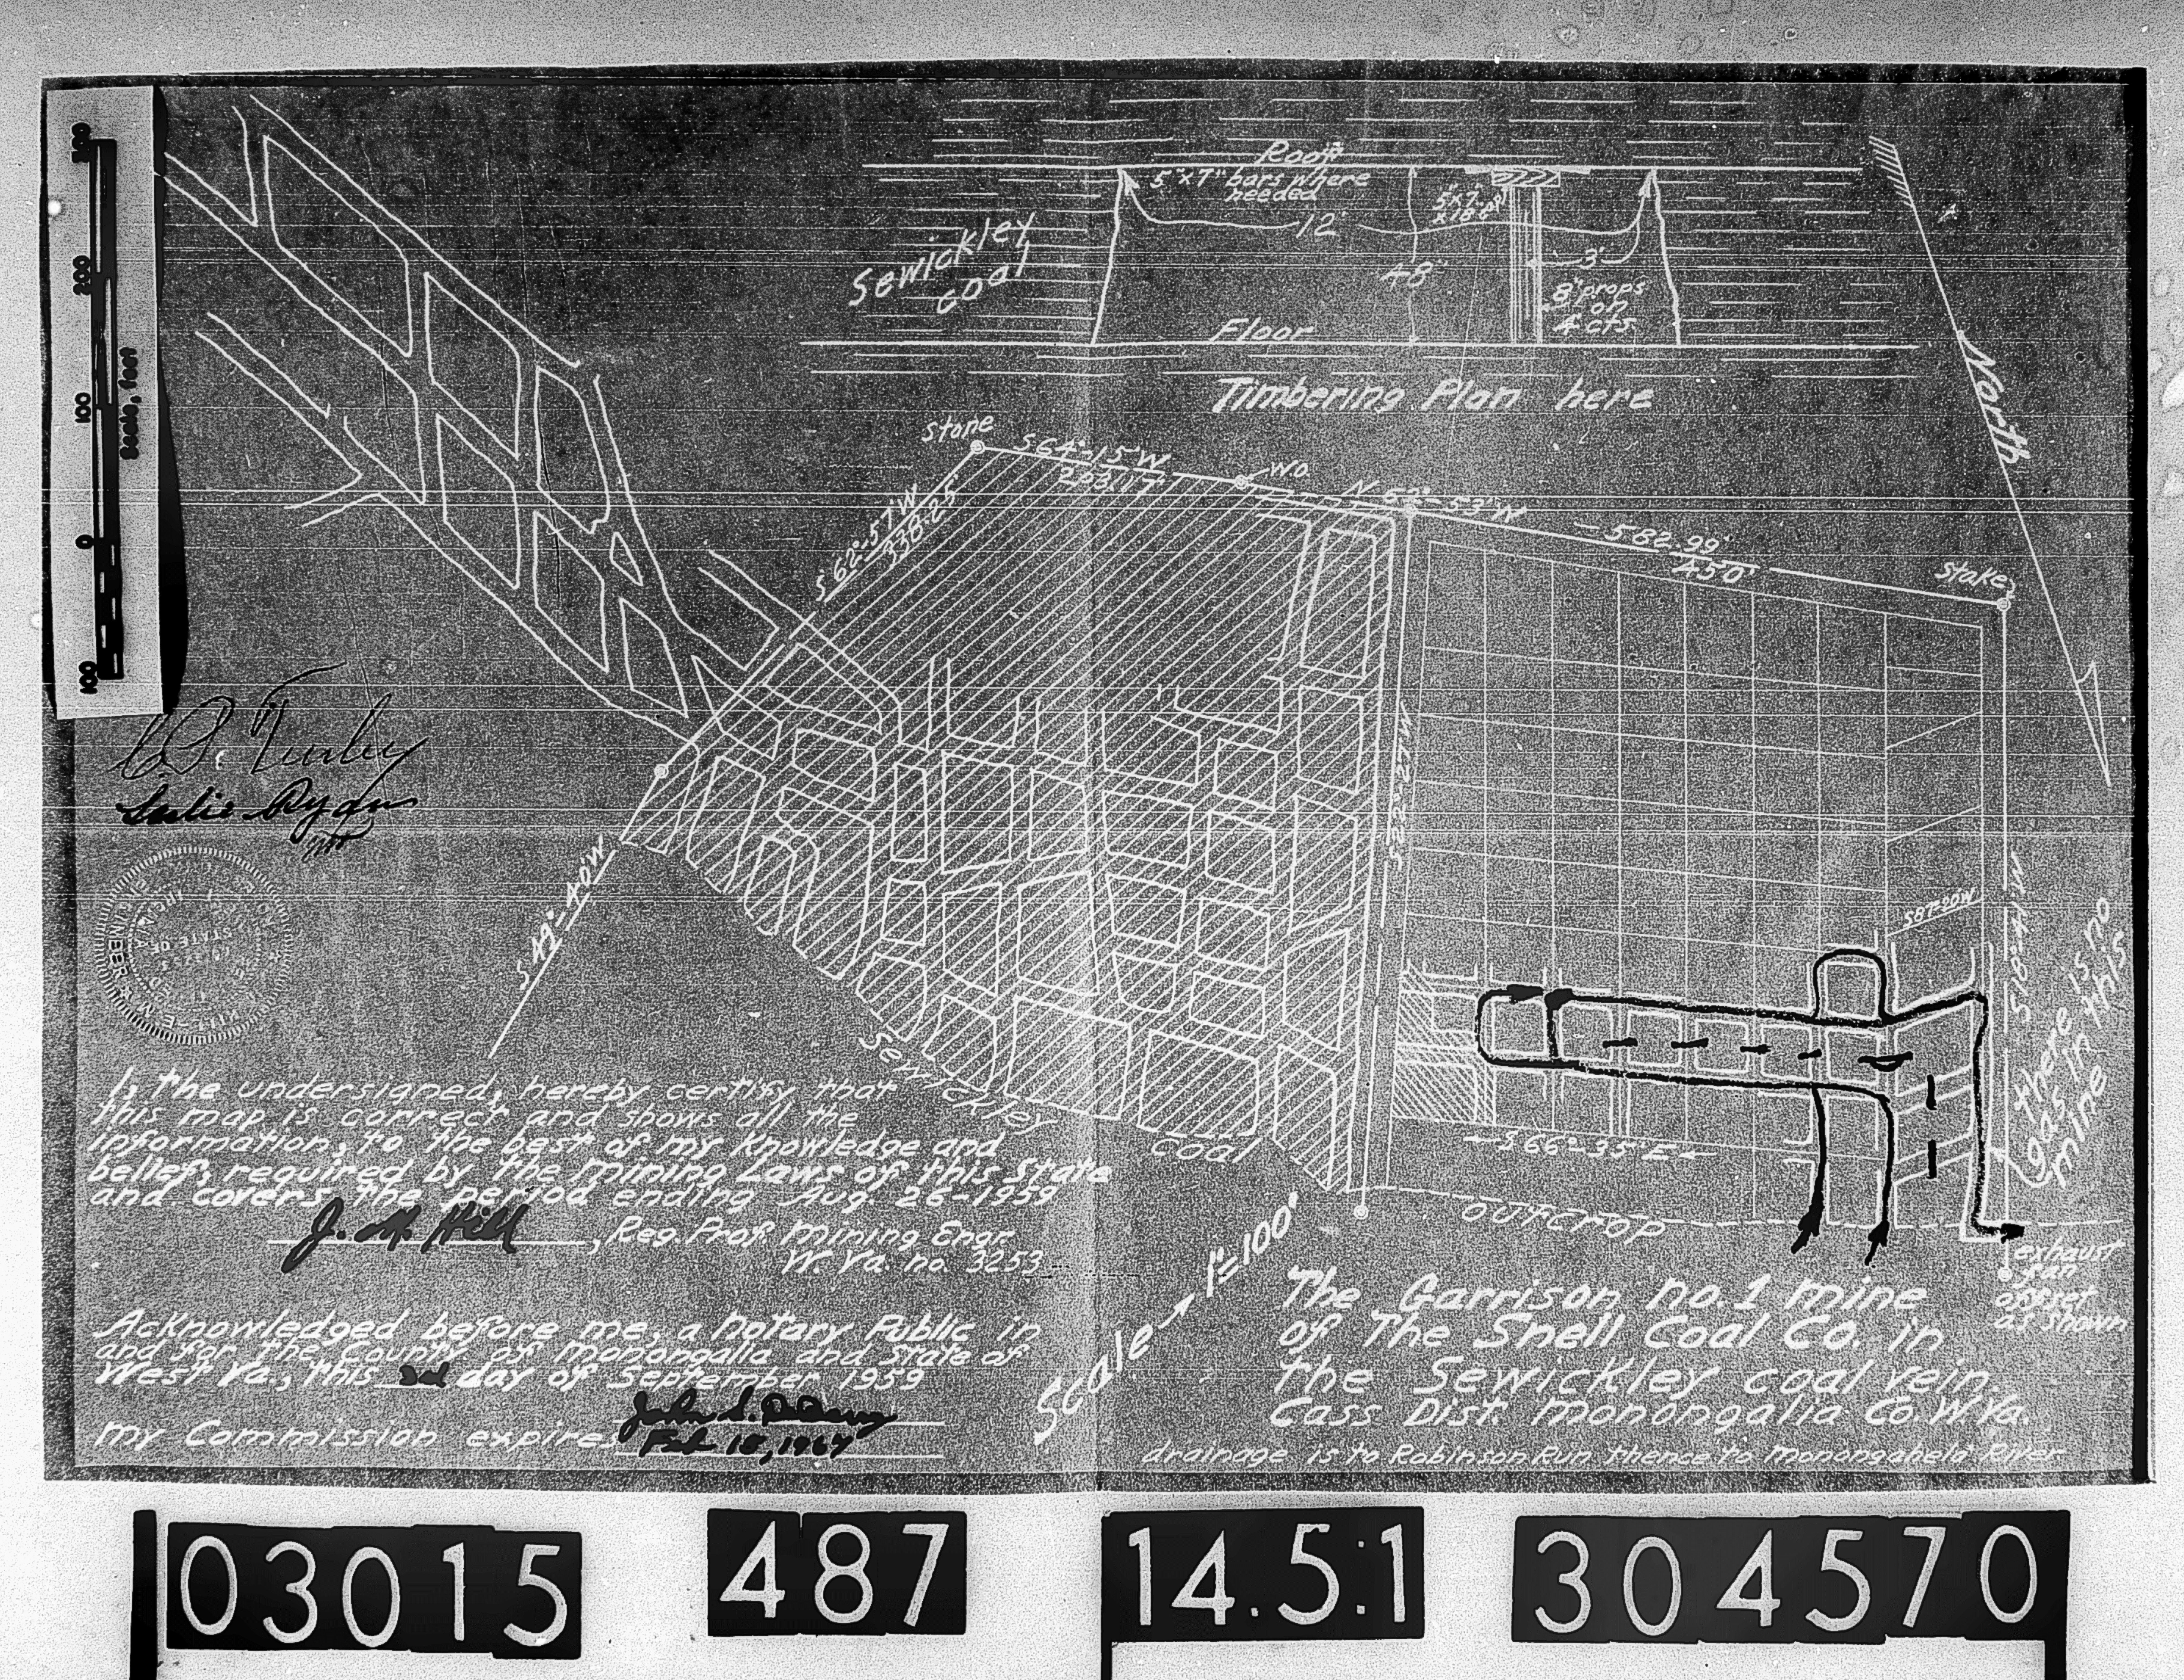 300
200
100
0
100
Scale, feet
Roof
5"x7" bars where
needed
12'
48"
3'
8" props
on
4' cts.
Sewickley
coal
Floor
Timbering Plan here
North
Stone
S 64°-15'W
263.17'
W.O.
S 62°-57'W
338.25'
582.99'
450'
stake
S 49°-40'W
S87°20'W
there is no
gas in this
mine
Leslie Ryan
ENGINEER
STATE OF
Sewickley
Coal
S 66°-35'E
outcrop
exhaust
fan
offset
as shown
I, the undersigned, hereby certify that
this map is correct and shows all the
information, to the best of my knowledge and
belief, required by the mining Laws of this State
and covers the period ending Aug. 26-1959
J. M. Hill, Reg. Prof. Mining Engr.
W. Va. no. 3253
Acknowledged before me, a notary Public in
and for the County of Monongalia and State of
West Va., this 3rd day of September 1959
my Commission expires Feb 18, 1967
Scale → 1"=100'
The Garrison no. 1 mine
of The Snell Coal Co. in
the Sewickley coal vein.
Cass Dist. Monongalia Co. W.Va.
drainage is to Robinson Run thence to Monongahela River
03015
487
14.5:1
304570